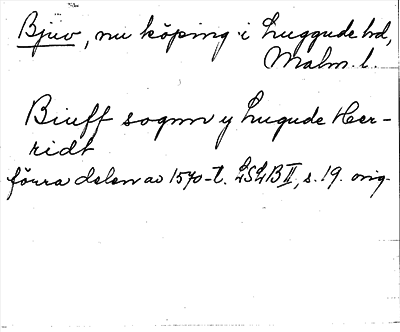 Bjuv, nu köping i Luggude hd,
Malm. l.
Biuff sognn y Lugude Her-
ridt
förra delen av 1570-t. LSLB II, s. 19. orig.